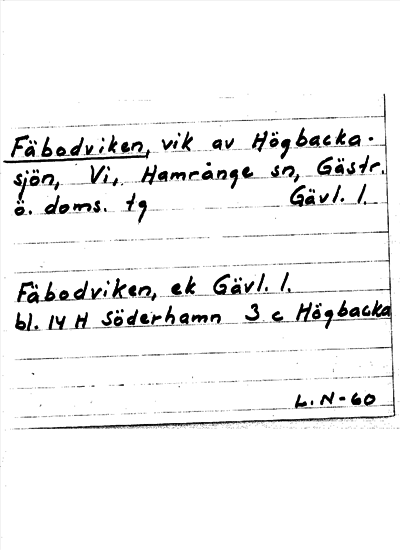 Fäbodviken, vik av Högbacka-
sjön, Vi, Hamrånge sn, Gästr.
ö. doms. tg Gävl. l.
Fäbodviken, ek Gävl. l.
bl. 14 H Söderhamn 3 c Högbacka
L. N-60